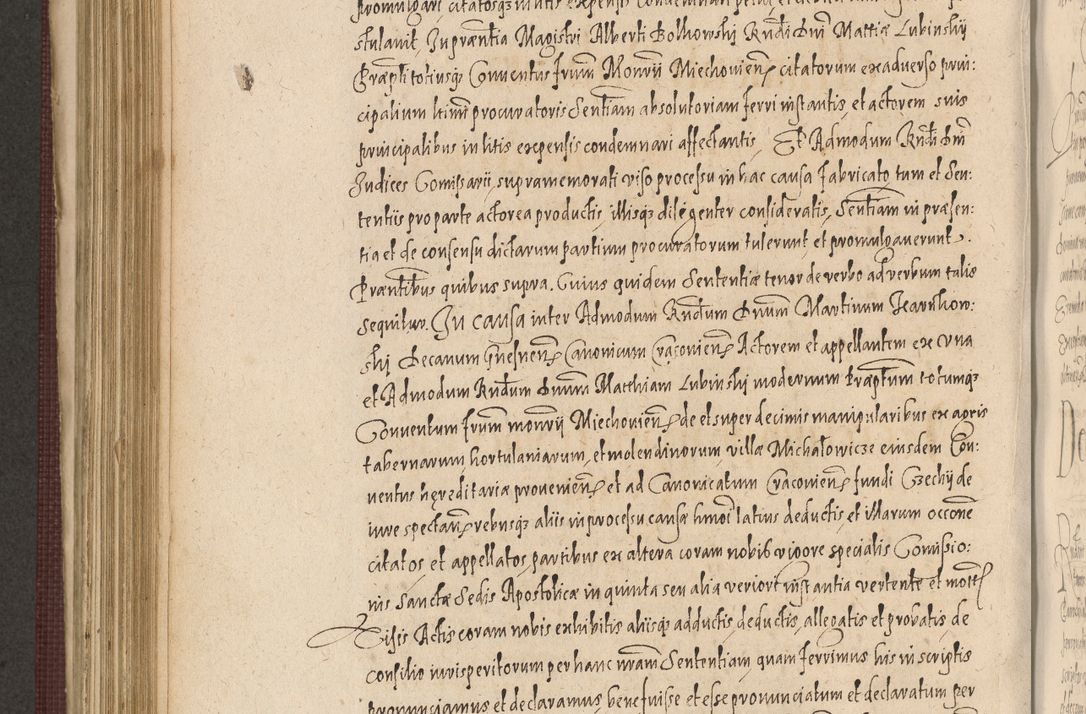 promulgari, citatosq̃ in litis expensis condemnari petiit, et
stulavit, In præntia Magistri Alberti Bolkowskj Rndi Dni Mattiæ Lubinskij
Præpti totiusq̃ Conventus frum Monrÿ Miechovien̄ citatorum ex adverso prin:
cipalium hmoi procuratoris Sentiam absolutoriam ferri instantis, et actorem suis
principalibus in litis expensis condemnari affectantis, Et Admodum Rndi Dni
Judices Comissarij, supra memorati viso processu in hac causa fabricato, tum et Sen:
tentiis pro parte actorea productis, illisq̃ diligenter consideratis, Sentiam in præsen:
tia et de consensu dictarum partium procuratorum tulerunt, et promulgaverunt.
Præntibus quibus supra. Cuius quidem Sententiæ tenor de verbo ad verbum talis
sequitur. In causa inter Admodum Rndum Dnum Martinum Jzarnkow:
skj Decanum Gnesnen̄ Canonicum Cracovien̄ Actorem et appellantem ex una
et Admodum Rndum Dnum Matthiam Lubinskj modernum Præptum totumq̃
Conventum frum monrÿ Miechovien̄ de et super decimis manipularibus ex agris
tabernarum, hortulaniarum, et molendinorum, villæ Michałowicze eiusdem Con:
ventus hęreditariæ provenien̄ et ad Canonicatum Cracovien̄ fundi Czechÿ de
iure spectan̄ rebusq̃ aliis in processu causæ hmoi latius deductis, et illarum occone
citatos et appellatos, partibus ex altera coram nobis vigore specialis Comissio:
nis Sanctæ Sedis Apostolicæ in quinta seu alia veriori instantia vertente et mota
Visis Actis coram nobis exhibitis aliisq̃ adductis, deductis, allegatis et probatis, de
consilio iurisperitorum per hanc nram Sententiam quam ferimus his in scriptis
pronunciamus et declaramus, bene fuisse et esse pronunciatum et declaratum per